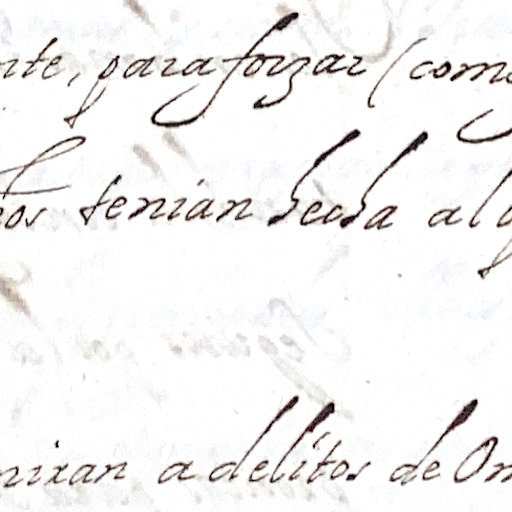 nte, para forzar (como
os tenian hecha alg
nixan a delitos de Om